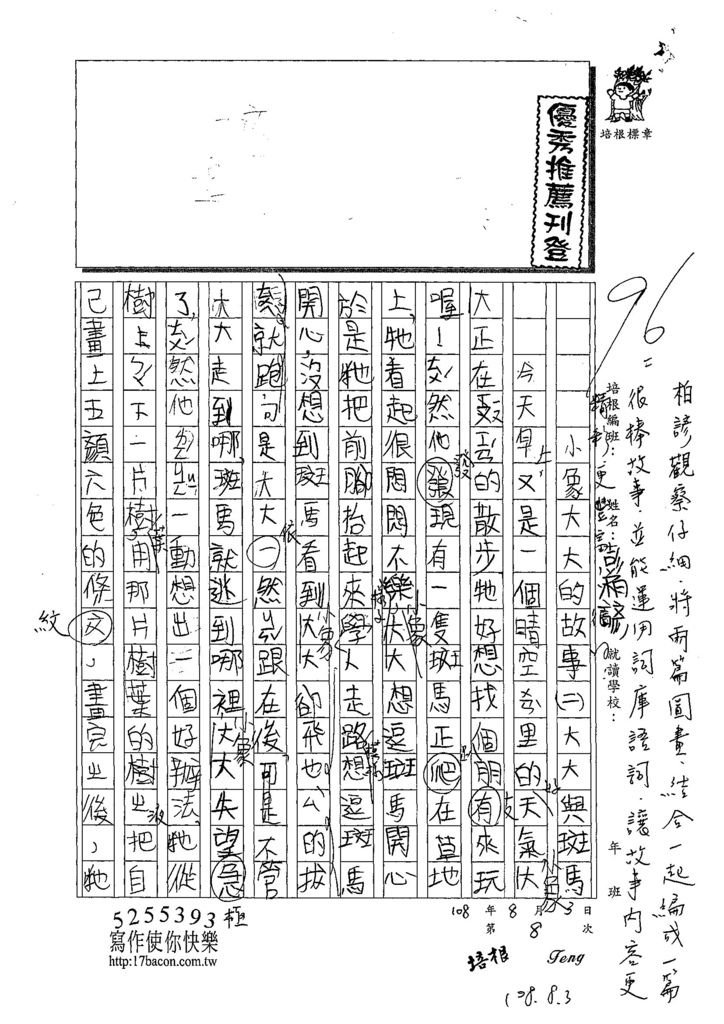 培根標章
優秀推薦刊登
96
柏諺觀察仔細,將兩篇圖畫,結合一起編成一篇
很棒故事,並能運用詞庫語詞,讓故事內容更
精彩、更豐富
培根編班:
姓名:
就讀學校:
年 班
小象大大的故事(二)大大與斑馬
今天早上又是一個晴空ㄨㄢˋ里的好天氣小象大
大正在ㄕㄡˇㄊㄧㄥˊ的散步牠好想找個朋有來玩
喔!ㄊㄨˊ然他發現有一隻斑馬正爬在草地
上,牠看起很悶悶不樂小象大大想逗斑馬開心
於是牠把前腳抬起來學人走路想逗斑馬
開心,沒想到斑馬看到小象大大卻飛也ㄙˋ的拔
腿就跑,可是大大一然ㄐㄧㄣˇ跟在後,可是不管
大大走到哪,斑馬就逃到哪裡小象大大失望急
了,ㄊㄨˊ然他ㄌㄧㄥˊㄐㄧ一動想出一個好辦法,牠從
樹上ㄋㄚˊ下一片樹葉,用那片樹葉的樹ㄓ把自
己畫上五顏六色的條文,畫完之後,牠
友
發
趴
依
極
紋
液
108年8月3日
第8次
5255393
寫作使你快樂
http:17bacon.com.tw
培根 Teng
108.8.3